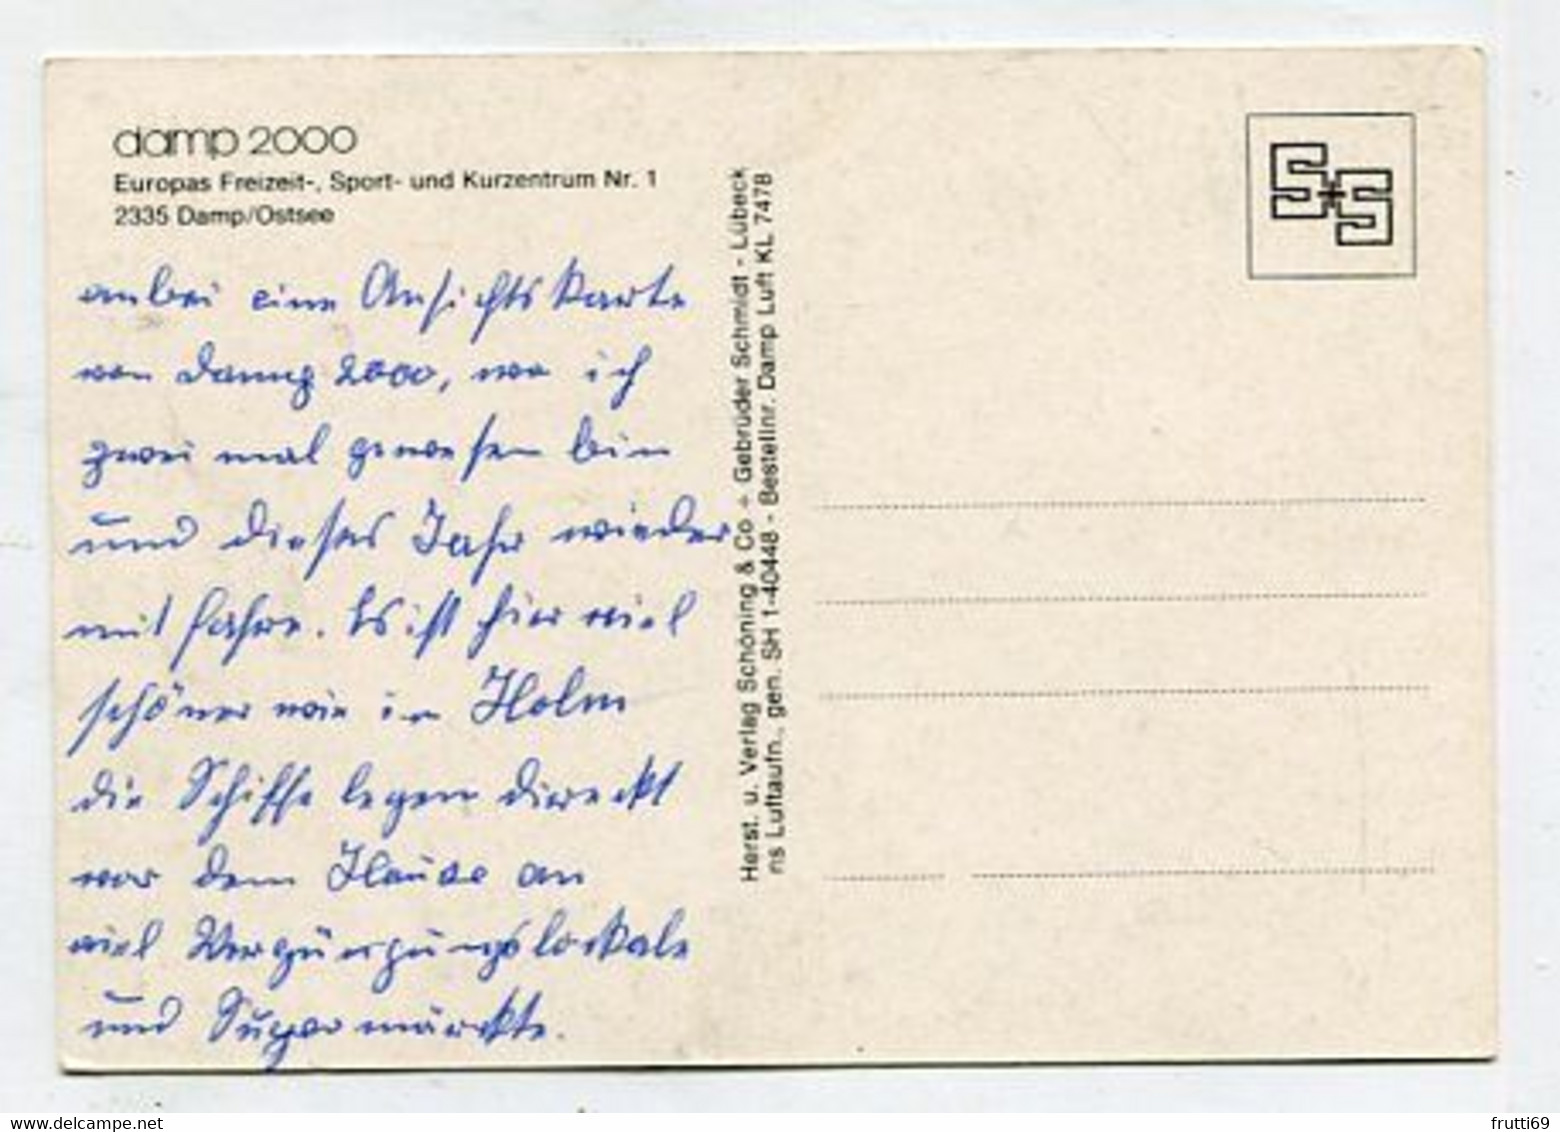 damp 2000
Europas Freizeit-, Sport- und Kurzentrum Nr. 1
2335 Damp/Ostsee
anbei eine Ansichtskarte
von Damp 2000, wo ich
zwei mal gewesen bin
und dieses Jahr wieder
mit fahre. Es ist hier viel
schöner wie in Holm
die Schiffe legen direckt
vor dem Hause an
viel Vergnügungslockale
und Supermärckte.
Herst. u. Verlag Schöning & Co + Gebrüder Schmidt - Lübeck
ns Luftaufn., gen. SH 1-40448 - Bestellnr. Damp Luft KL 7478
S+S
frutti69